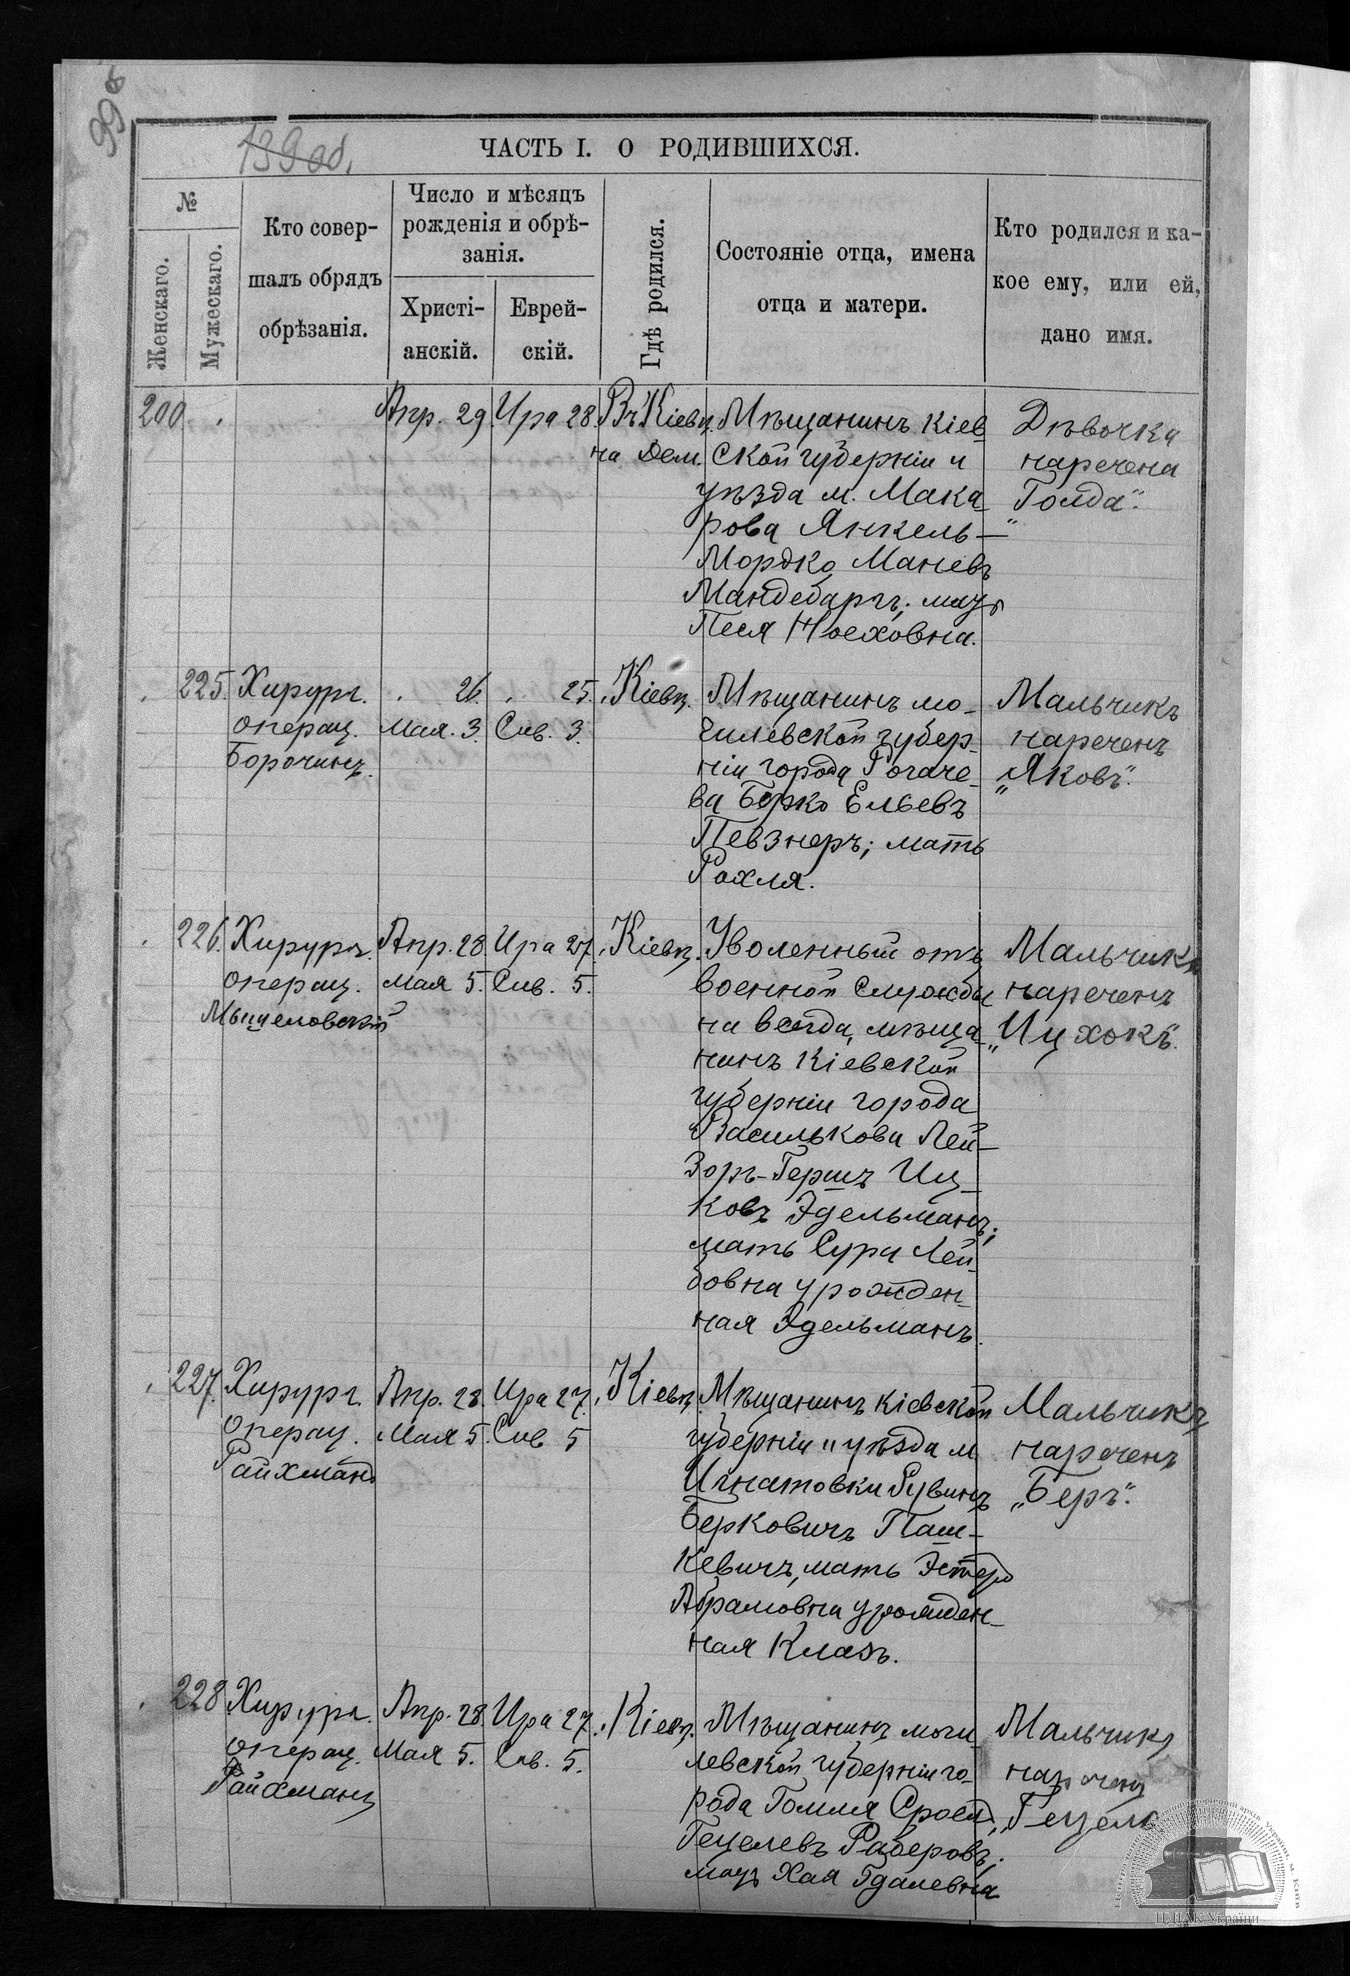 99
139 об.
ЧАСТЬ I. О РОДИВШИХСЯ.
№
Женскаго.
Мужескаго.
Кто совер-
шалъ обрядъ
обрѣзанія.
Число и мѣсяцъ
рожденія и обрѣ-
занія.
Христі-
анскій.
Еврей-
скій.
Гдѣ родился.
Состояніе отца, имена
отца и матери.
Кто родился и ка-
кое ему, или ей,
дано имя.
200.
Апр. 29.
Ира 28.
Въ Кіевѣ
на Дем.
Мѣщанинъ Кіев
ской губерніи и
уѣзда м. Мака-
рова Янкель-
Мордко Маневъ
Мандебаргъ; мать
Песя Ноеховна.
Дѣвочка
наречена
„Голда“.
225.
Хирург.
операц.
Борочинъ.
26.
Мая. 3.
25.
Сив. 3.
Кіевѣ.
Мѣщанинъ мо-
гилевской губер-
ніи города Рогаче-
ва Берко Ельевъ
Певзнеръ; мать
Рохля.
Мальчикъ
нареченъ
„Яковъ“.
226.
Хирург.
операц.
Апр. 28
Мая 5.
Ира 27.
Сив. 5.
Кіевѣ.
Уволенный отъ
военной службы
на всегда, мѣща-
нинъ Кіевской
губерніи города
Василькова Лей-
зоръ-Гершъ Иц-
ковъ Эдельманъ;
мать Сура Лей-
бовна урожден-
ная Эдельманъ.
Мальчикъ
нареченъ
„Ицхокъ“.
227.
Хирург.
операц.
Райхманъ
Апр. 28.
Мая 5.
Ира 27.
Сив 5
Кіевѣ
Мѣщанинъ кіевской
губерніи и уѣзда м
Игнатовки Рувинъ
Берковичъ Паш-
кевичъ, мать Эстеръ
Абрамовна урожден-
ная Клазъ.
Мальчикъ
нареченъ
„Беръ“.
228
Хирург.
операц.
Райхманъ
Апр. 28.
Мая 5.
Ира 27.
Сив. 5.
Кіевѣ.
Мѣщанинъ моги-
левской губерніи го-
рода Гомля Сроель
Гецелевъ Раберовъ;
мать Хая Гдалевна
Мальчикъ
нареченъ
„Гецель
ЦДІАК України